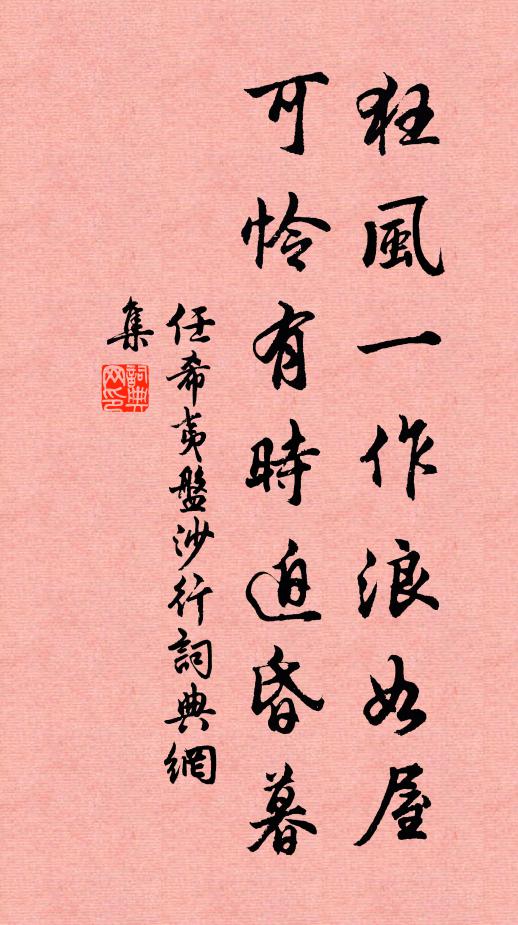 狂風一作浪如屋
可憐有時迫昏暮
任希夷盤沙行詞典網
集
詞典
网印